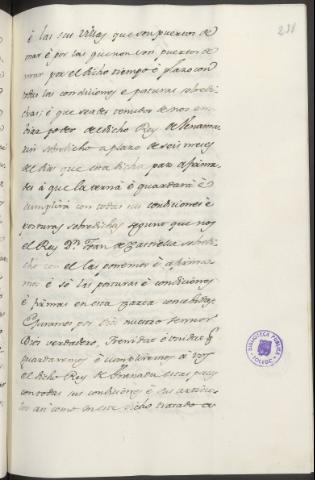 231
è las sus Villas que son puertos de
mar è por las que non son puertos de
mar por el dicho tiempo è plazo con
todas las condiciones e posturas sobredi
chas; è que seades tenudos de nos em
biar poder del dicho Rey de Benamarin
sobredicho a plazo de seis meses
del dia que esta dicha paz es firma
da à que la terná è guardará è
cumplirá con todas sus condiciones è
posturas sobredichas segunt que nos
el Rey Dn. de Castiella sobredi
cho con el las ponemos è afirma
mos è so las posturas è condiciones
è firmas en esta carta contenidas,
E juramos por Dios nuestro Sennor
Dios verdadero, Trenidat è Unidat q
guardaremos è cumpliremos à vos
el dicho Rey de Granada estas paces
con todas sus condiciones è sus articu
los asi como en este dicho tratado es
BIBLIOTECA PUBLICA
TOLEDO